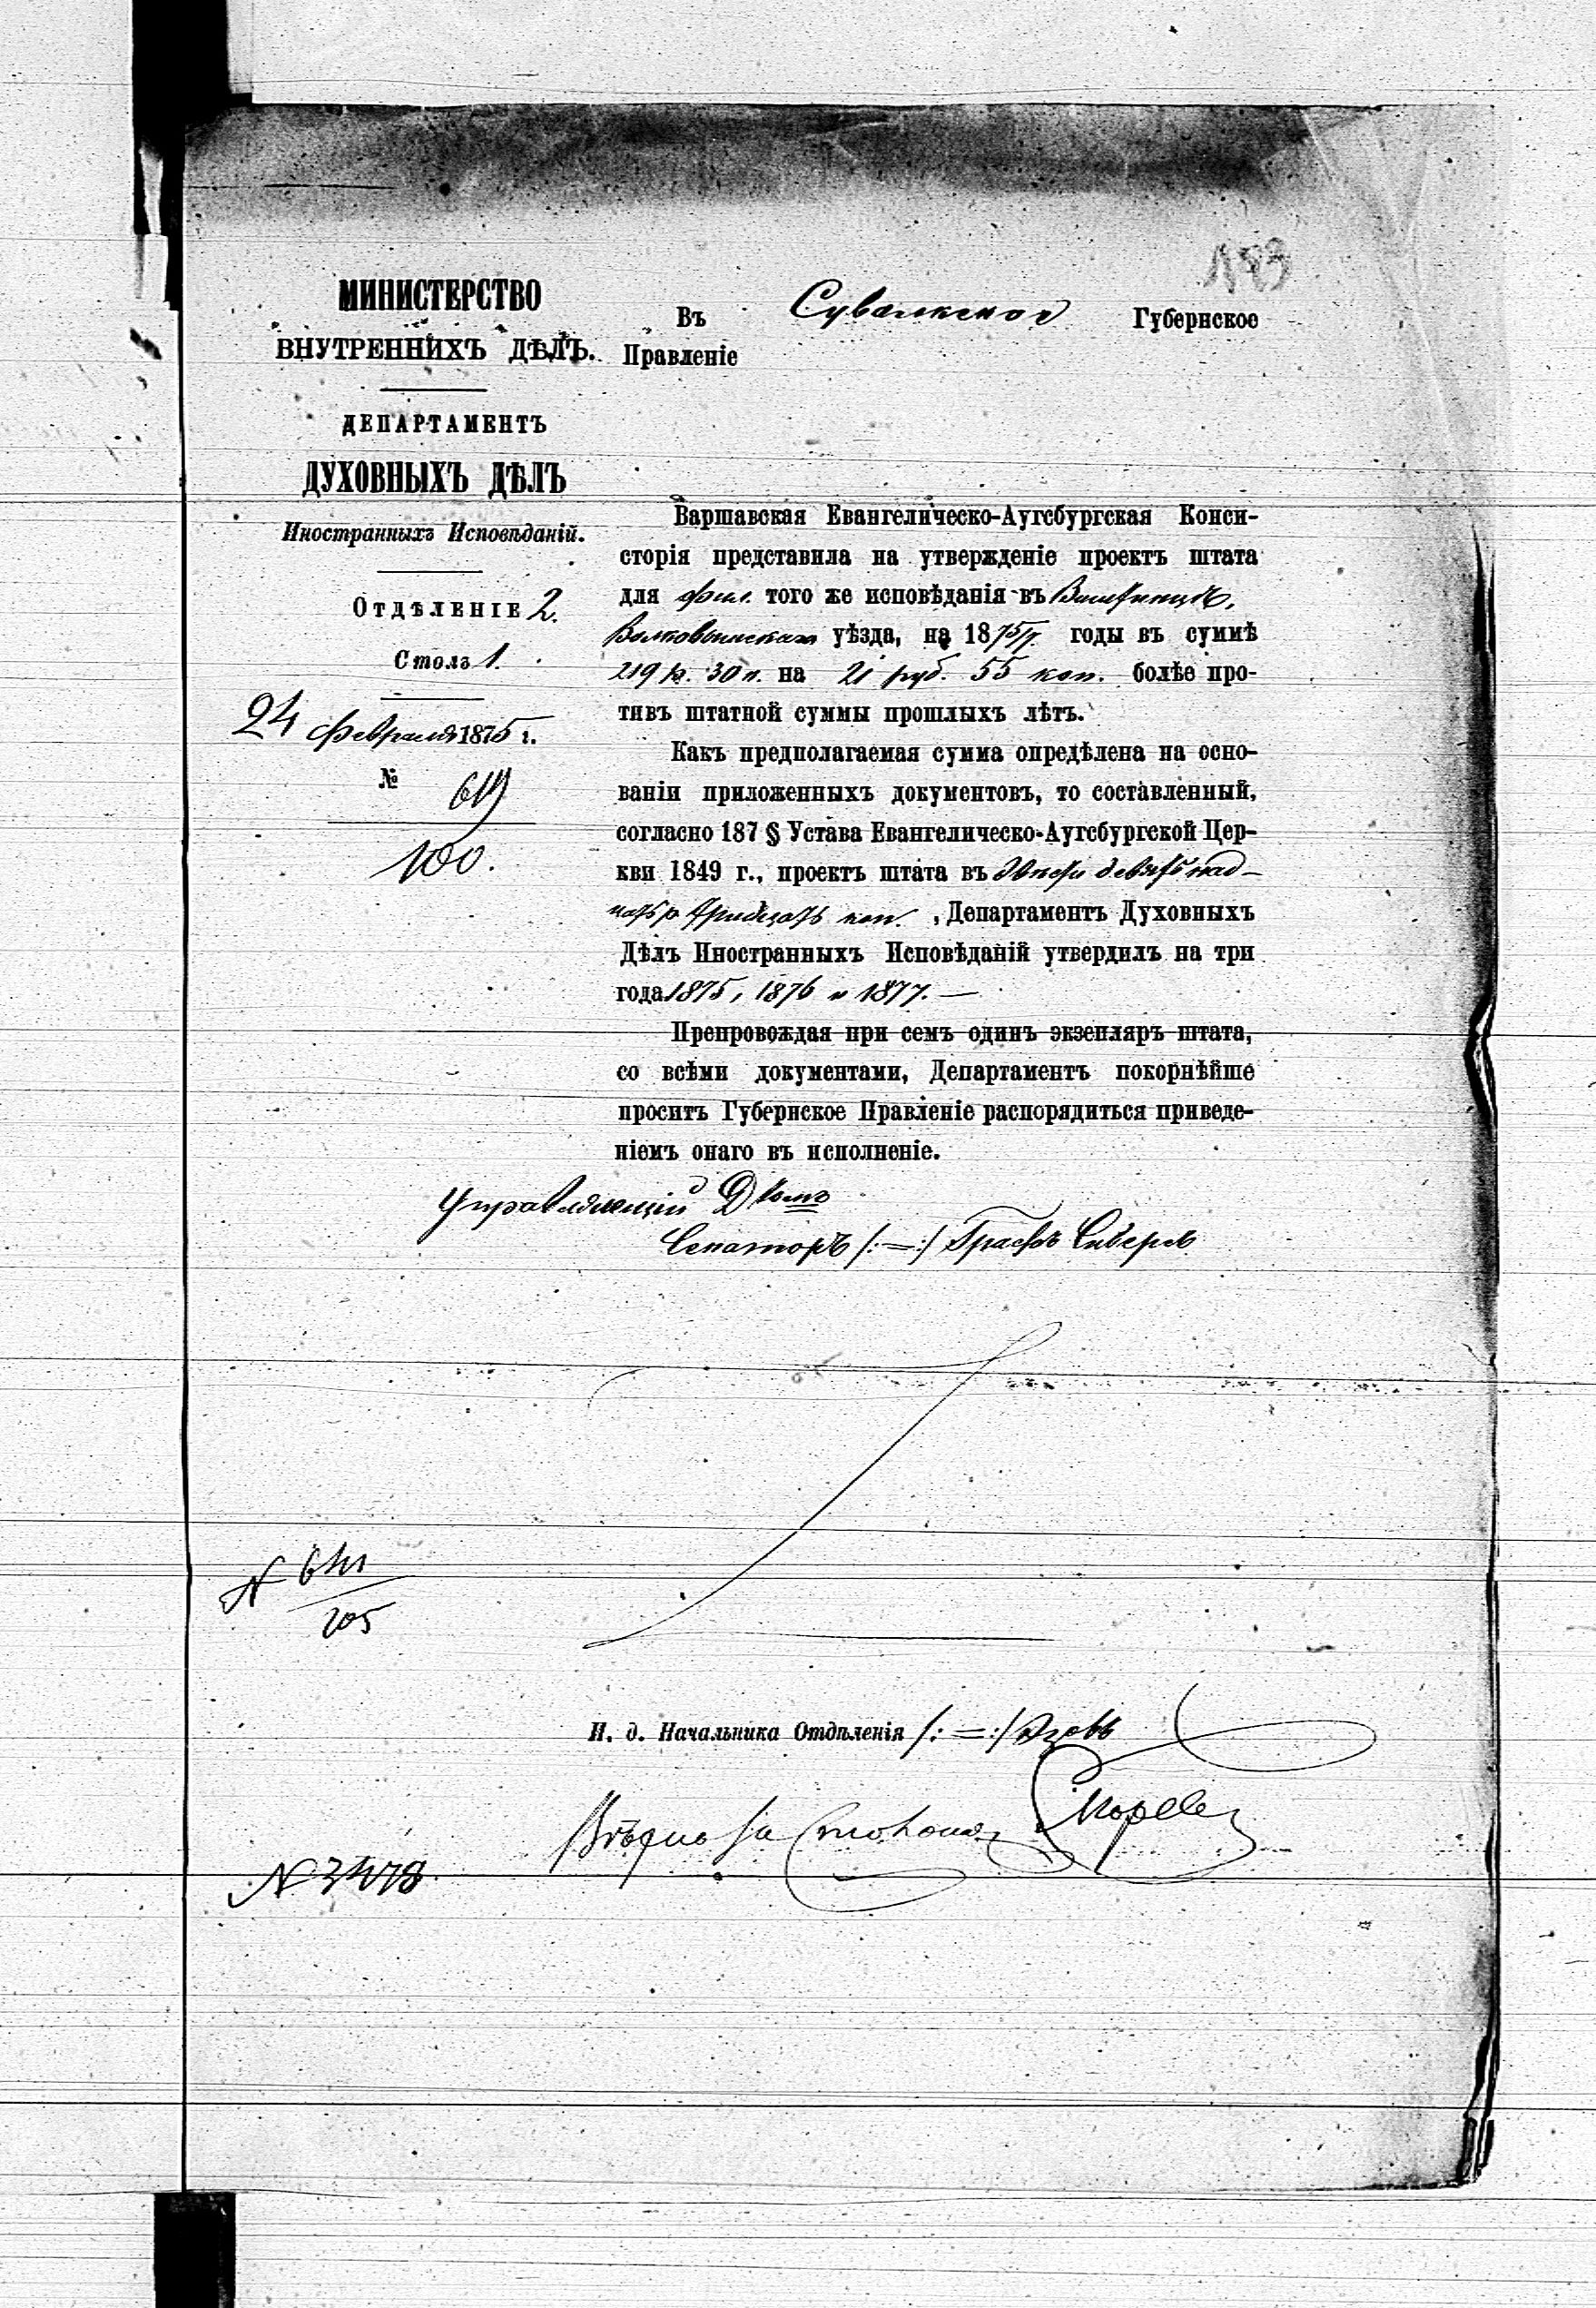 183
МИНИСТЕРСТВО
ВНУТРЕННИХЪ ДѢЛЪ.
ДЕПАРТАМЕНТЪ
ДУХОВНЫХЪ ДѢЛЪ
Иностранныхъ Исповѣданій.
ОТДѢЛЕНІЕ 2.
Столъ 1.
24 Февраля 1875 г.
№ 619
100.
Въ Сувалкское Губернское
Правленіе
Варшавская Евангелическо-Аугсбургская Конси-
сторія представила на утвержденіе проектъ штата
для фил. того же исповѣданія въ Виштинцѣ,
Волковышскаго уѣзда, на 1875/7 годы въ суммѣ
219 р. 30 к. на 21 руб. 55 коп. болѣе про-
тивъ штатной суммы прошлыхъ лѣтъ.
Какъ предполагаемая сумма опредѣлена на осно-
ваніи приложенныхъ документовъ, то составленный,
согласно 187 § Устава Евангелическо-Аугсбургской Цер-
кви 1849 г., проектъ штата въ двѣсти девятнад-
цать р. тридцать коп., Департаментъ Духовныхъ
Дѣлъ Иностранныхъ Исповѣданій утвердилъ на три
года 1875, 1876 и 1877. —
Препровождая при семъ одинъ экземпляръ штата,
со всѣми документами, Департаментъ покорнѣйше
проситъ Губернское Правленіе распорядиться приведе-
ніемъ онаго въ исполненіе.
Управляющій Д-томъ
Сенаторъ /:=:/ Графъ Сиверсъ
N 641
205
И. д. Начальника Отдѣленія /:=:/ Азовъ
Вѣрно за
N 3478